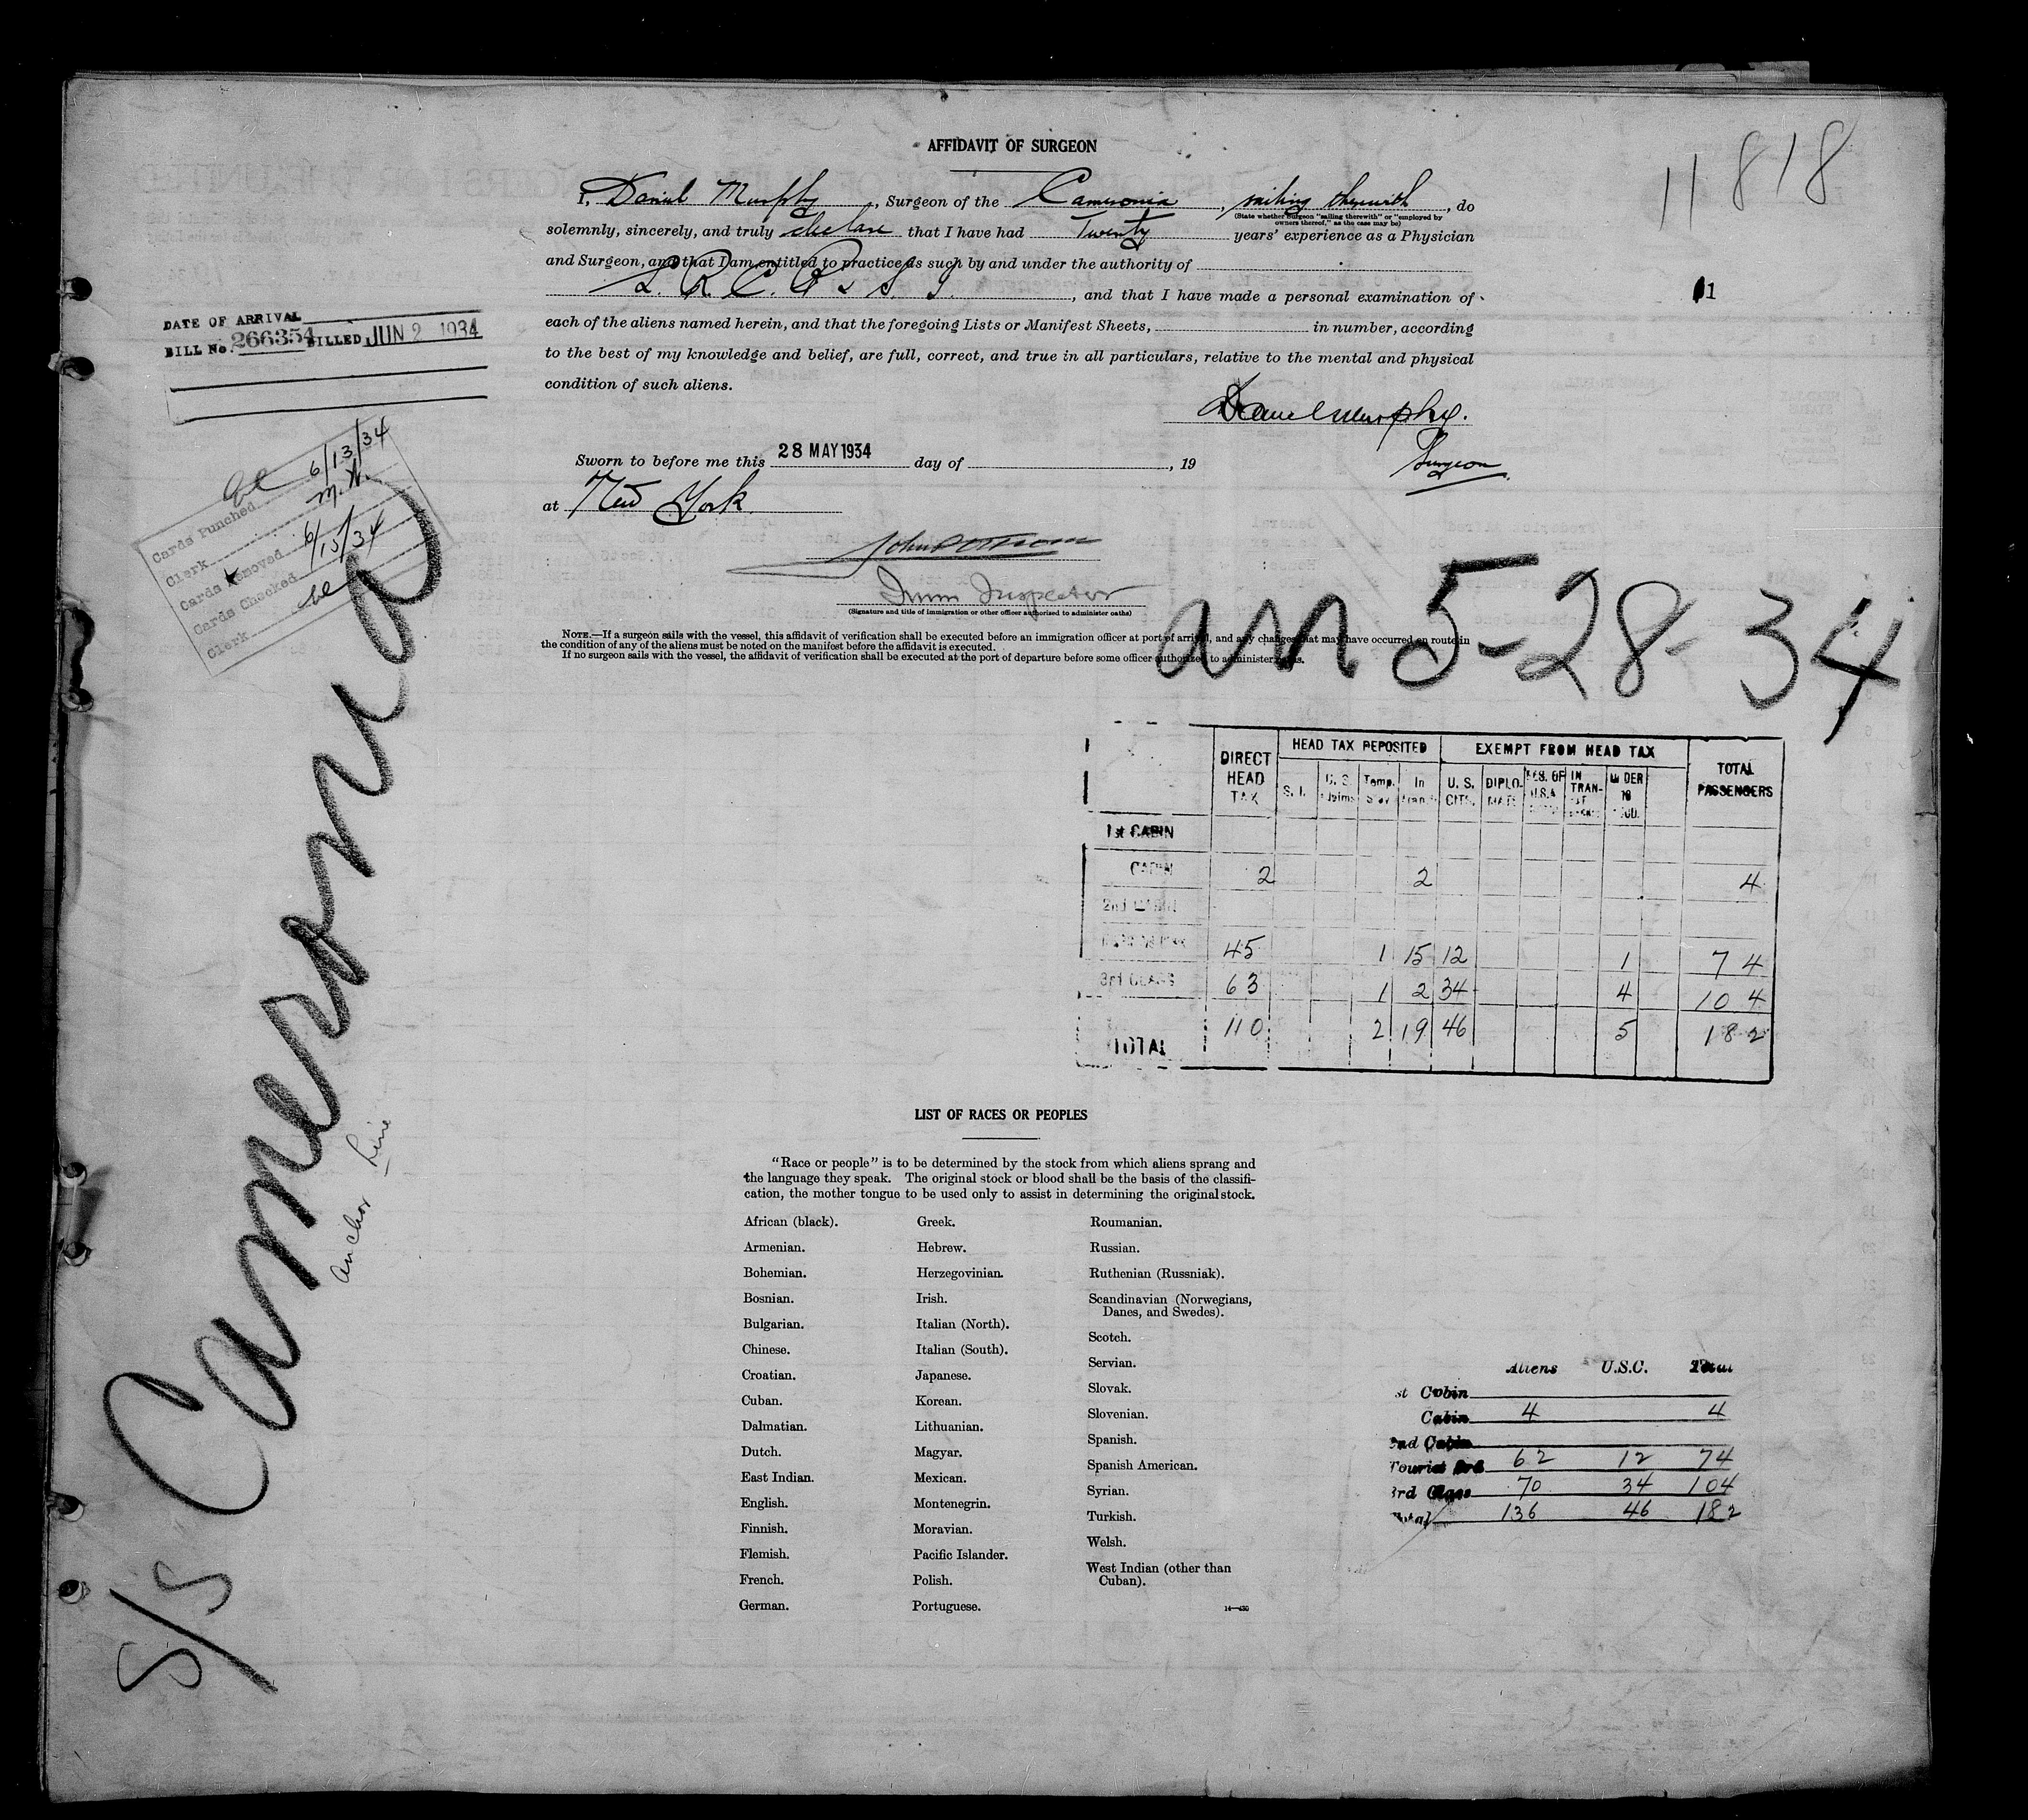 AFFIDAVIT OF SURGEON
11818
I, Daniel Murphy, Surgeon of the Cameronia, sailing therewith, do
(State whether Surgeon "sailing therewith" or "employed by
owners thereof," as the case may be)
solemnly, sincerely, and truly declare that I have had Twenty years' experience as a Physician
and Surgeon, and that I am entitled to practice as such by and under the authority of
L. R. C. P. & S. I., and that I have made a personal examination of
1
each of the aliens named herein, and that the foregoing Lists or Manifest Sheets, in number, according
to the best of my knowledge and belief, are full, correct, and true in all particulars, relative to the mental and physical
condition of such aliens.
DATE OF ARRIVAL
BILL No. 266354 BILLED JUN 2 1934
Daniel Murphy.
Surgeon
Sworn to before me this 28 MAY 1934 day of , 19
at New York
Imm Inspector
(Signature and title of immigration or other officer authorized to administer oaths)
NOTE.—If a surgeon sails with the vessel, this affidavit of verification shall be executed before an immigration officer at port of arrival, and any changes that may have occurred en route in
the condition of any of the aliens must be noted on the manifest before the affidavit is executed.
If no surgeon sails with the vessel, the affidavit of verification shall be executed at the port of departure before some officer authorized to administer oaths.
Cards Punched 6/13/34
Clerk M.H.
Cards Removed
Cards Checked 6/15/34
Clerk
am 5-28-34
S/S Cameronia
Anchor Line
DIRECT HEAD TAX HEAD TAX DEPOSITED EXEMPT FROM HEAD TAX TOTAL PASSENGERS
S. I. U. S. Temp. In U. S. CITS. DIPLO- RES. OF U.S.A. IN TRAN- UNDER
1st CABIN
CABIN 2 2 4
2nd CABIN
45 1 15 12 1 74
3rd CLASS 63 1 2 34 4 104
TOTAL 110 2 19 46 5 182
LIST OF RACES OR PEOPLES
"Race or people" is to be determined by the stock from which aliens sprang and
the language they speak. The original stock or blood shall be the basis of the classifi-
cation, the mother tongue to be used only to assist in determining the original stock.
African (black).
Armenian.
Bohemian.
Bosnian.
Bulgarian.
Chinese.
Croatian.
Cuban.
Dalmatian.
Dutch.
East Indian.
English.
Finnish.
Flemish.
French.
German.
Greek.
Hebrew.
Herzegovinian.
Irish.
Italian (North).
Italian (South).
Japanese.
Korean.
Lithuanian.
Magyar.
Mexican.
Montenegrin.
Moravian.
Pacific Islander.
Polish.
Portuguese.
Roumanian.
Russian.
Ruthenian (Russniak).
Scandinavian (Norwegians,
Danes, and Swedes).
Scotch.
Servian.
Slovak.
Slovenian.
Spanish.
Spanish American.
Syrian.
Turkish.
Welsh.
West Indian (other than
Cuban).
14—430
Aliens U.S.C. Total
st Cabin
Cabin 4 4
2nd Cabin
Tourist 3rd 62 12 74
3rd Class 70 34 104
Total 136 46 182